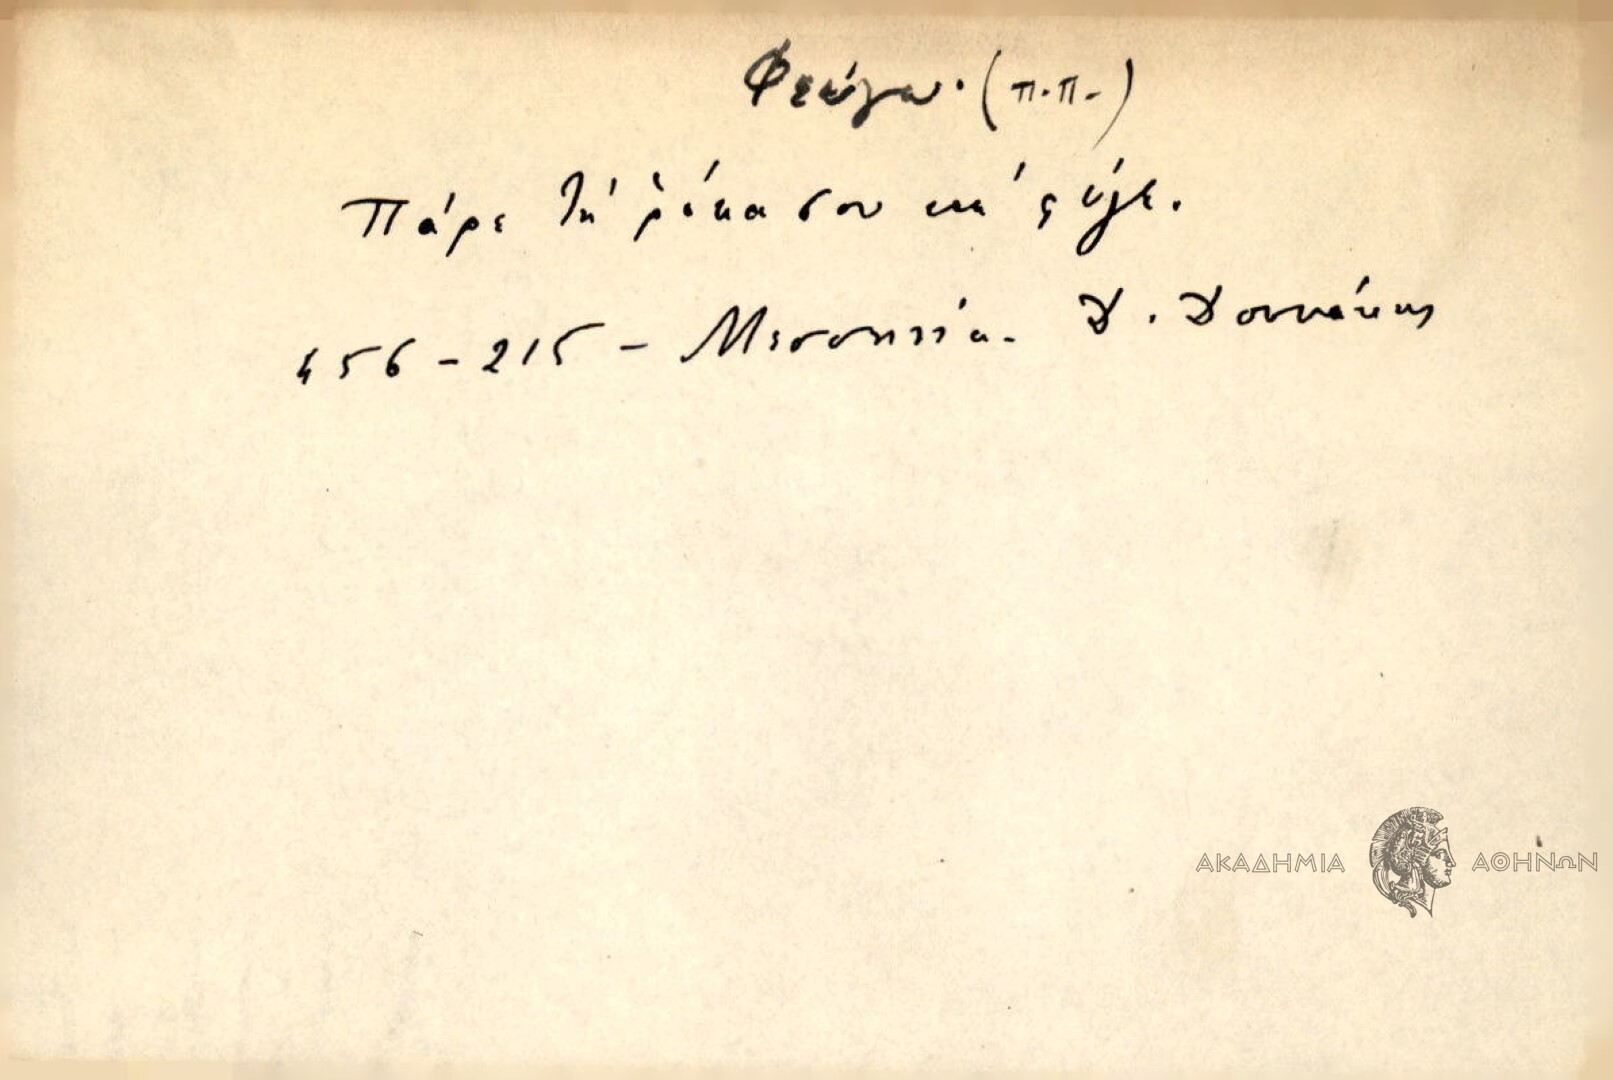 Φεύγω. (π.π.)
Πάρε τή ῥόκα σου καί φύγε.
456 - 215 - Μεσσηνία. Δ. Δουκάκης
ΑΚΑΔΗΜΙΑ ΑΘΗΝΩΝ